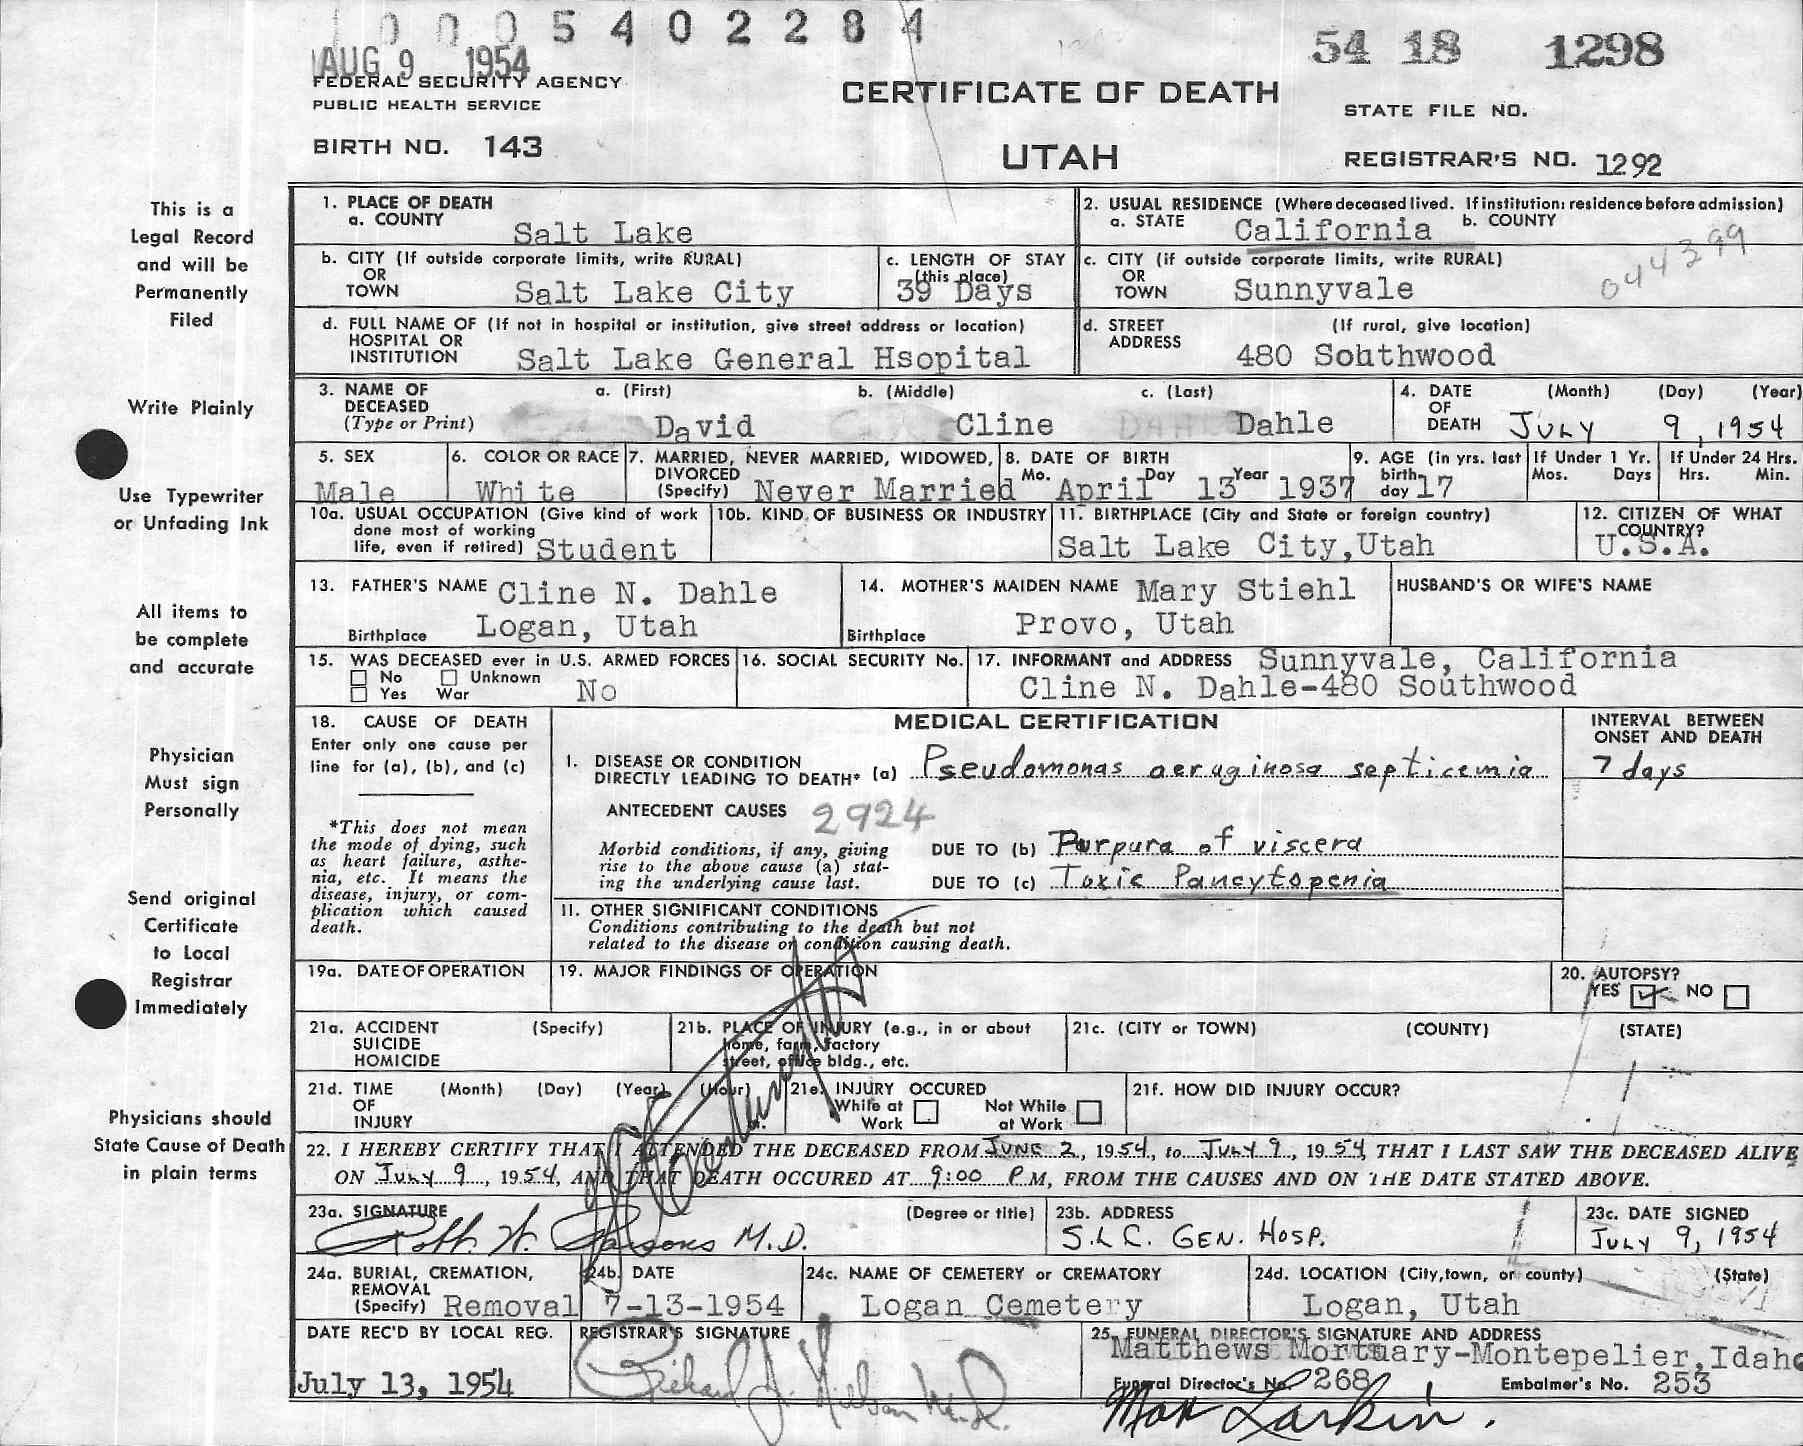 0005402284
AUG 9 1954
54 18 1298
FEDERAL SECURITY AGENCY
PUBLIC HEALTH SERVICE
CERTIFICATE OF DEATH
STATE FILE NO.
BIRTH NO. 143
UTAH
REGISTRAR'S NO. 1292
This is a
Legal Record
and will be
Permanently
Filed
Write Plainly
Use Typewriter
or Unfading Ink
All items to
be complete
and accurate
Physician
Must sign
Personally
Send original
Certificate
to Local
Registrar
Immediately
Physicians should
State Cause of Death
in plain terms
1. PLACE OF DEATH
a. COUNTY Salt Lake
2. USUAL RESIDENCE (Where deceased lived. If institution: residence before admission)
a. STATE California b. COUNTY
044399
b. CITY (If outside corporate limits, write RURAL)
OR
TOWN Salt Lake City
c. LENGTH OF STAY
(this place)
39 Days
c. CITY (if outside corporate limits, write RURAL)
OR
TOWN Sunnyvale
d. FULL NAME OF (If not in hospital or institution, give street address or location)
HOSPITAL OR
INSTITUTION Salt Lake General Hsopital
d. STREET (If rural, give location)
ADDRESS 480 Sohthwood
3. NAME OF a. (First) b. (Middle) c. (Last)
DECEASED
(Type or Print) David Cline Dahle
4. DATE (Month) (Day) (Year)
OF
DEATH JULY 9, 1954
5. SEX
Male
6. COLOR OR RACE
White
7. MARRIED, NEVER MARRIED, WIDOWED,
DIVORCED
(Specify) Never Married
8. DATE OF BIRTH
Mo. April Day 13 Year 1937
9. AGE (in yrs. last
birth
day 17
If Under 1 Yr.
Mos. Days
If Under 24 Hrs.
Hrs. Min.
10a. USUAL OCCUPATION (Give kind of work
done most of working
life, even if retired) Student
10b. KIND OF BUSINESS OR INDUSTRY
11. BIRTHPLACE (City and State or foreign country)
Salt Lake City,Utah
12. CITIZEN OF WHAT
COUNTRY?
U.S.A.
13. FATHER'S NAME Cline N. Dahle
Birthplace Logan, Utah
14. MOTHER'S MAIDEN NAME Mary Stiehl
Birthplace Provo, Utah
HUSBAND'S OR WIFE'S NAME
15. WAS DECEASED ever in U.S. ARMED FORCES
No Unknown
Yes War No
16. SOCIAL SECURITY No.
17. INFORMANT and ADDRESS Sunnyvale, California
Cline N. Dahle-480 Southwood
18. CAUSE OF DEATH
Enter only one cause per
line for (a), (b), and (c)
*This does not mean
the mode of dying, such
as heart failure, asthe-
nia, etc. It means the
disease, injury, or com-
plication which caused
death.
MEDICAL CERTIFICATION
INTERVAL BETWEEN
ONSET AND DEATH
I. DISEASE OR CONDITION
DIRECTLY LEADING TO DEATH* (a) Pseudomonas aeruginosa septicemia 7 days
ANTECEDENT CAUSES 2924
Morbid conditions, if any, giving
rise to the above cause (a) stat-
ing the underlying cause last.
DUE TO (b) Purpura of viscera
DUE TO (c) Toxic Pancytopenia
II. OTHER SIGNIFICANT CONDITIONS
Conditions contributing to the death but not
related to the disease or condition causing death.
19a. DATE OF OPERATION
19. MAJOR FINDINGS OF OPERATION
20. AUTOPSY?
YES NO
21a. ACCIDENT (Specify)
SUICIDE
HOMICIDE
21b. PLACE OF INJURY (e.g., in or about
home, farm, factory
street, office bldg., etc.
21c. (CITY or TOWN) (COUNTY) (STATE)
21d. TIME (Month) (Day) (Year) (Hour)
OF
INJURY m.
21e. INJURY OCCURED
While at Work
Not While at Work
21f. HOW DID INJURY OCCUR?
22. I HEREBY CERTIFY THAT I ATTENDED THE DECEASED FROM JUNE 2, 1954, to JULY 9, 1954, THAT I LAST SAW THE DECEASED ALIVE
ON JULY 9, 1954, AND THAT DEATH OCCURED AT 9:00 P M, FROM THE CAUSES AND ON THE DATE STATED ABOVE.
23a. SIGNATURE (Degree or title)
Robt. W. Parsons M.D.
23b. ADDRESS
S.L.C. GEN. HOSP.
23c. DATE SIGNED
JULY 9, 1954
24a. BURIAL, CREMATION,
REMOVAL
(Specify) Removal
24b. DATE
7-13-1954
24c. NAME OF CEMETERY or CREMATORY
Logan Cemetery
24d. LOCATION (City, town, or county) (State)
Logan, Utah
DATE REC'D BY LOCAL REG.
July 13, 1954
REGISTRAR'S SIGNATURE
25. FUNERAL DIRECTOR'S SIGNATURE AND ADDRESS
Matthews Mortuary-Montepelier, Idaho
Funeral Director's No. 268 Embalmer's No. 253
Max Larkin.